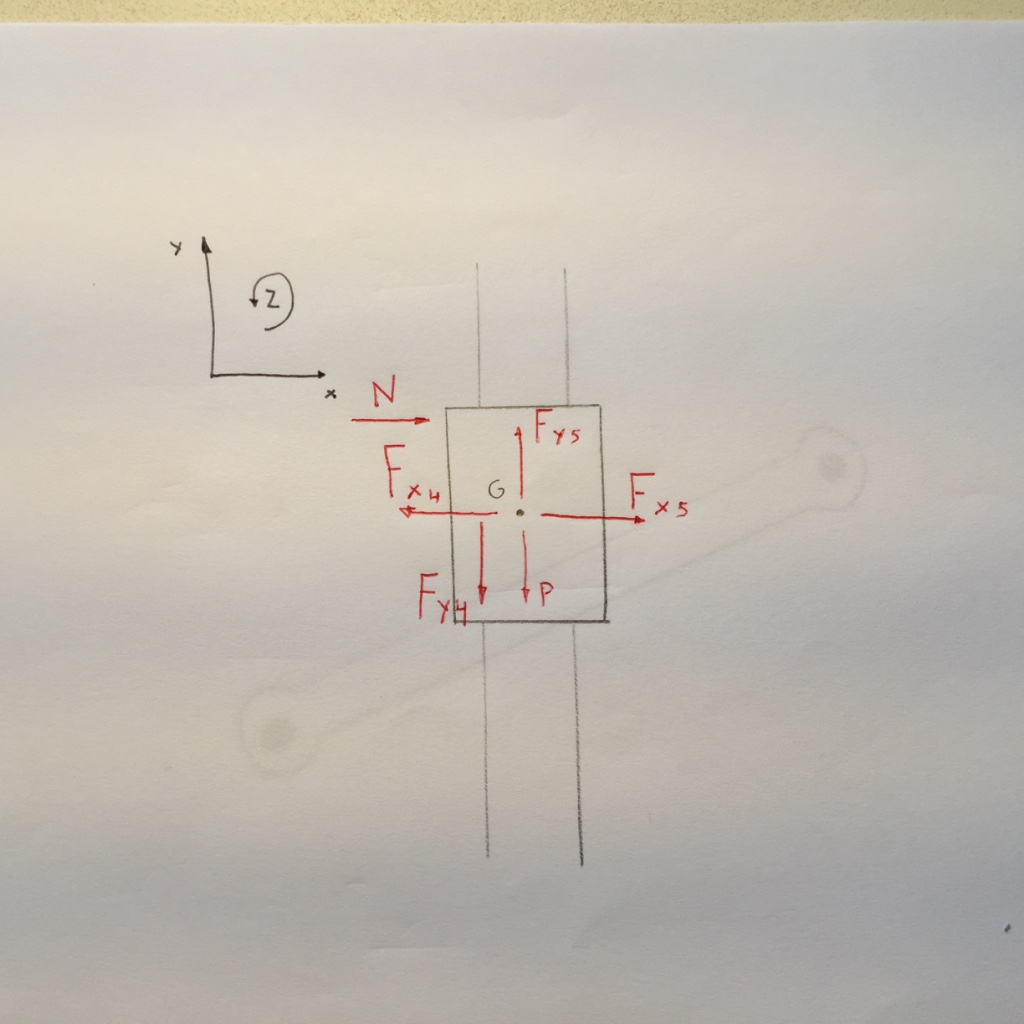 y
z
x
N
Fy5
Fx4
G
Fx5
Fy4
P